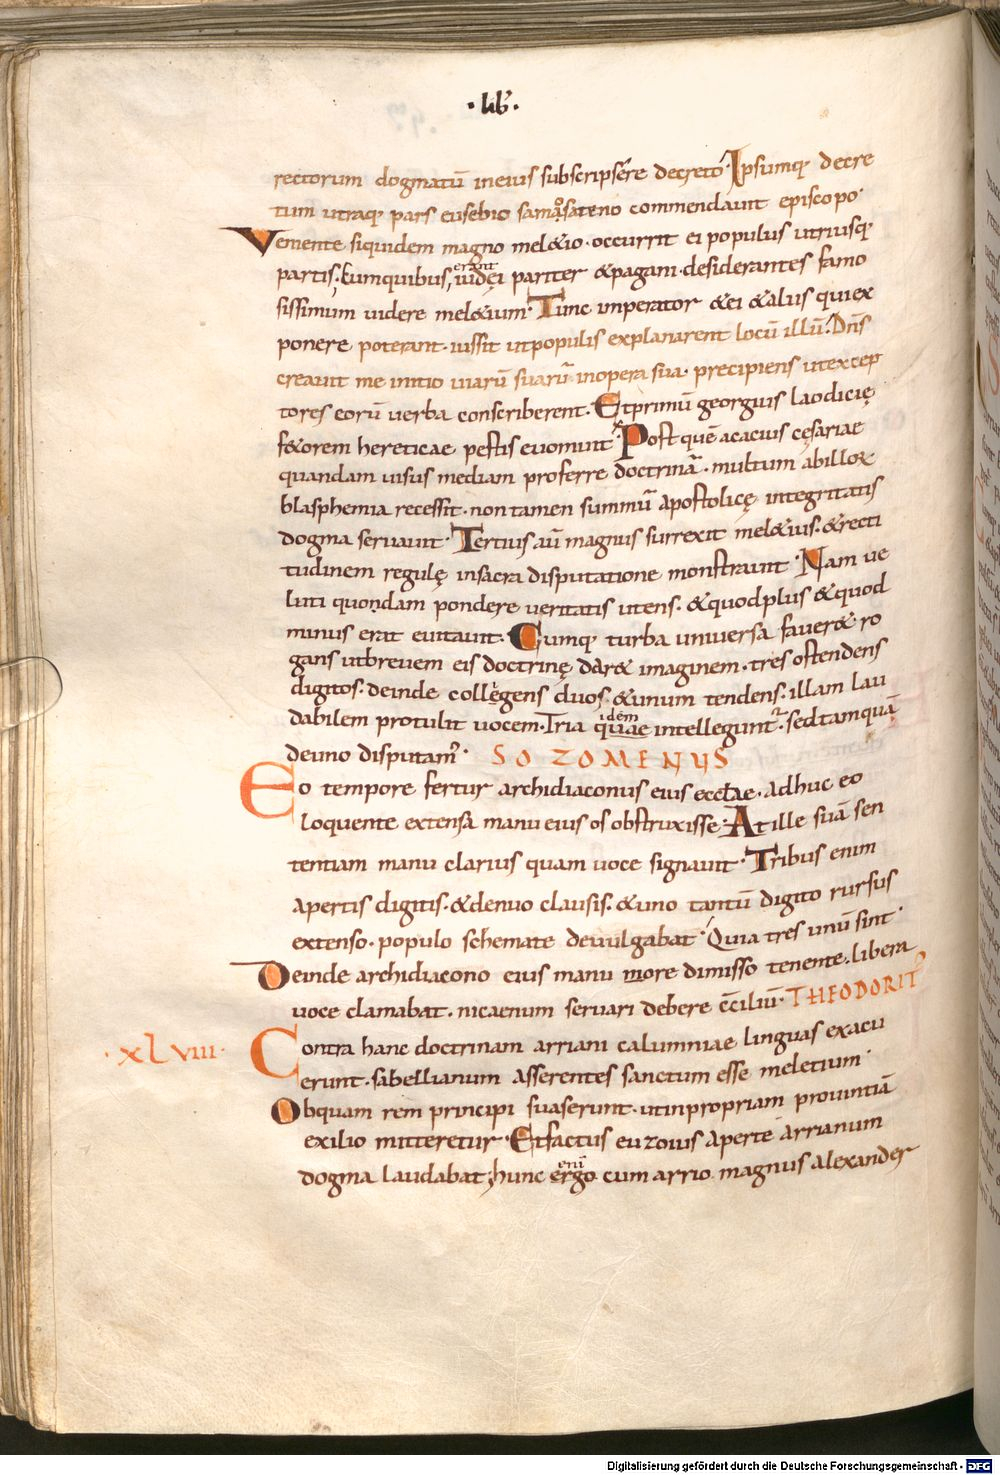 ·lib̄·
rectorum dogmatū ineius subscripsēre decreto·Ipsumq; decre
tum utraq; pars eusebio samosateno commendauit episcopo·
Veniente siquidem magno mel&io·occurrit ei populus utriusq;
partis·Cumquibus, erant iudęi pariter &pagani·desiderantes famo
sissimum uidere mel&ium·Tunc imperator &ei &aliis quiex
ponere poterant·iussit utpopulis explanarent locū illū·Dn̄s
creauit me initio uiarū suarū inopera sua·precipiens utexcep
tores eorū uerba conscriberent·Etprimū georgius laodicię
f&orem hereticae pestis euomuit·Post quē acacius cęsariae
quandam uisus mediam proferre doctrinā·multum abillor̄
blasphemia recessit·non tamen summū apostolicę integritatis
dogma seruauit·Tertius aū magnus surrexit mel&ius·&recti
tudinem regulę insacra disputatione monstrauit·Nam ue
luti quondam pondere ueritatis utens·&quodplus &quod
minus erat euitauit·Cumq; turba uniuersa fauer& ro
gans utbreuem eis doctrinę dar& imaginem·tres ostendens
digitos·deinde collegens duos·&unum tendens·illam lau
dabilem protulit uocem·Tria idem quae intelleguntr̄·sedtamquā
deuno disputam̄·SOZOMENUS
Eo tempore fertur archidiaconus eius ecclae·adhuc eo
loquente extensa manu eius os obstruxisse·At ille suā sen
tentiam manu clarius quam uoce signauit·Tribus enim
apertis digitis·&denuo clausis·&uno tantū digito rursus
extenso·populo schemate deuulgabat·Quia tres unū sint·
Deinde archidiacono eius manu more dimisso tenente·libera
uoce clamabat·nicaenum seruari debere c̄cilium·THEODORIT'
·xlviii·
Contra hanc doctrinam arriani calumniae linguas exacu
erunt·sabellianum asserentes sanctum esse meletium·
Obquam rem principi suaserunt·utinpropriam prouintiā
exilio mitteretur·Etfactus euzoius aperte arrianum
dogma laudabat; hunc eni ergo cum arrio magnus alexander
Digitalisierung gefördert durch die Deutsche Forschungsgemeinschaft - DFG